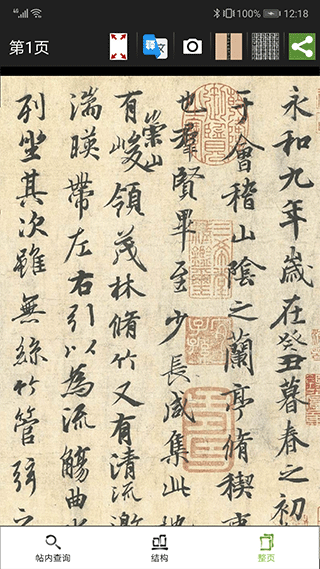 4G 100% 12:18
第1页
釋文
永和九年歲在癸丑暮春之初
于會稽山陰之蘭亭脩稧事
也羣賢畢至少長咸集此地
有崇山峻領茂林脩竹又有清流激
湍暎帶左右引以為流觴曲水
列坐其次雖無絲竹管弦之
帖内查询
结构
整页